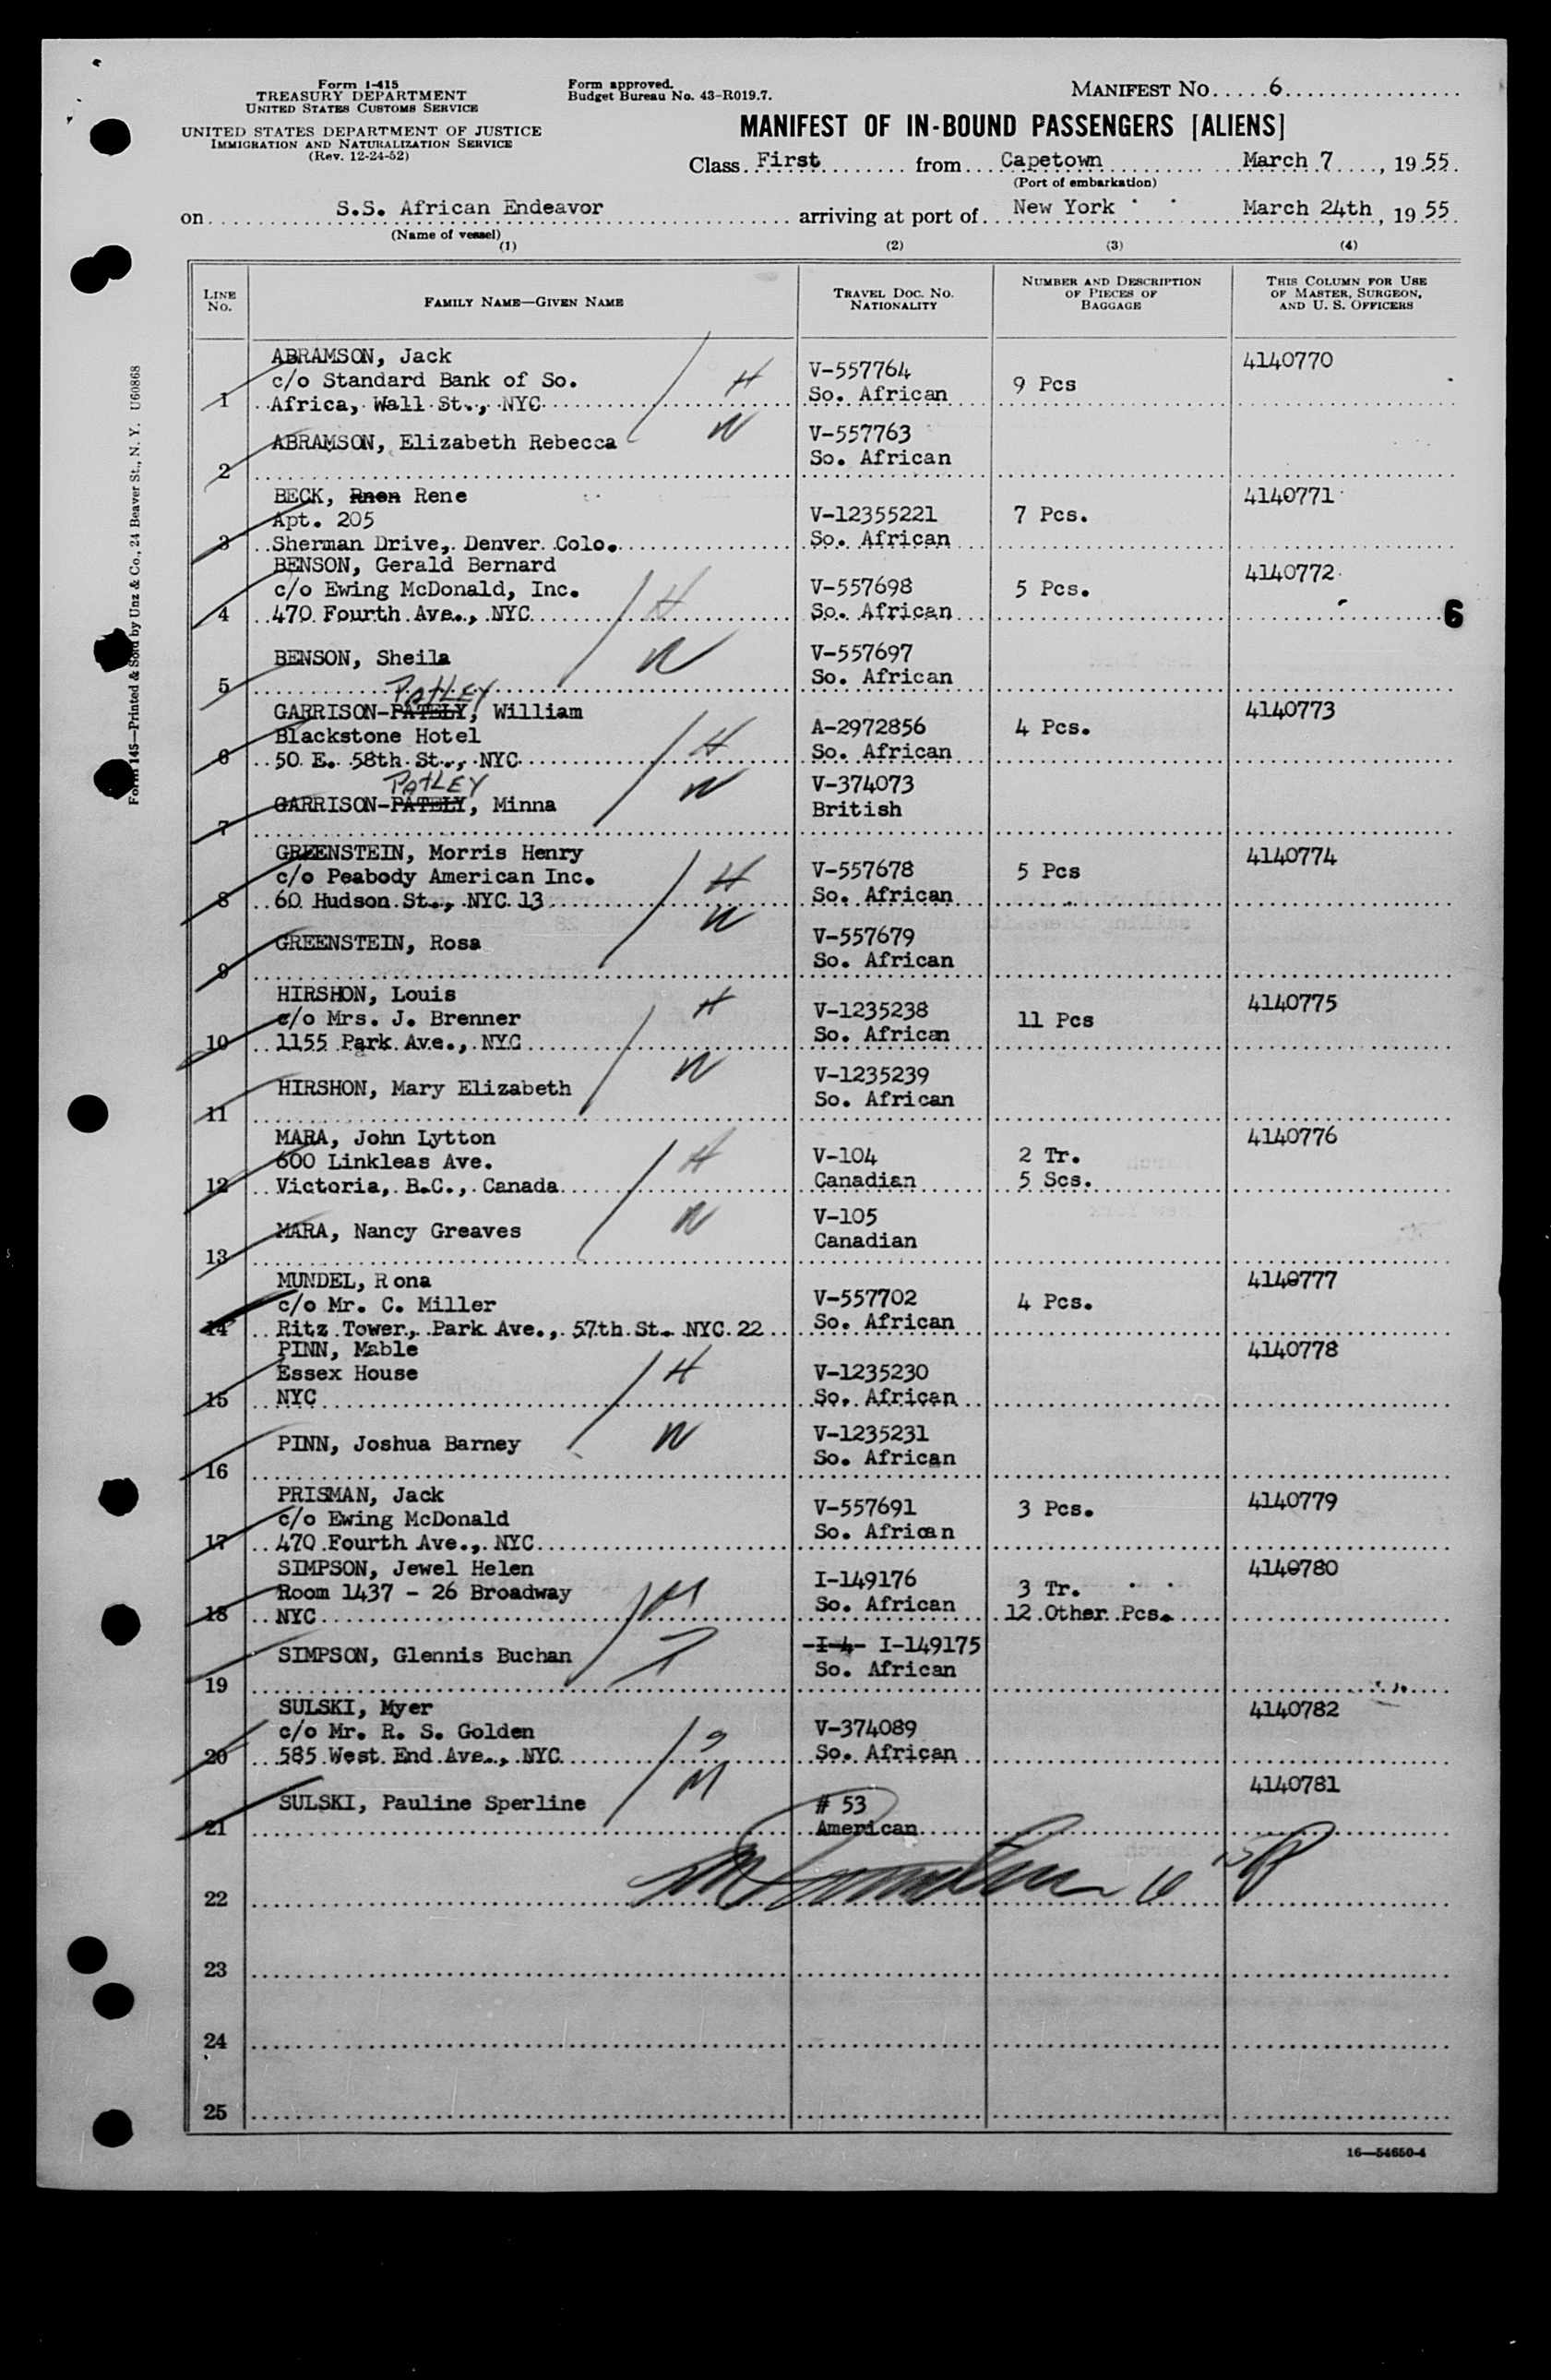 Form I-415
TREASURY DEPARTMENT
UNITED STATES CUSTOMS SERVICE
UNITED STATES DEPARTMENT OF JUSTICE
IMMIGRATION AND NATURALIZATION SERVICE
(Rev. 12-24-52)
Form approved.
Budget Bureau No. 43-R019.7.
MANIFEST NO.....6
MANIFEST OF IN-BOUND PASSENGERS [ALIENS]
Class First from Capetown March 7, 1955
(Port of embarkation)
on S.S. African Endeavor arriving at port of New York March 24th, 1955
(Name of vessel)
(1) (2) (3) (4)
LINE NO. FAMILY NAME—GIVEN NAME TRAVEL DOC. NO. NATIONALITY NUMBER AND DESCRIPTION OF PIECES OF BAGGAGE THIS COLUMN FOR USE OF MASTER, SURGEON, AND U. S. OFFICERS
ABRAMSON, Jack 4140770
c/o Standard Bank of So. H V-557764 9 Pcs
1 Africa, Wall St., NYC So. African
ABRAMSON, Elizabeth Rebecca W V-557763
2 So. African
BECK, Rnen Rene 4140771
Apt. 205 V-12355221 7 Pcs.
3 Sherman Drive, Denver Colo. So. African
BENSON, Gerald Bernard 4140772
c/o Ewing McDonald, Inc. H V-557698 5 Pcs.
4 470 Fourth Ave., NYC So. African
6
BENSON, Sheila W V-557697
5 So. African
PATLEY
GARRISON-PATELY, William 4140773
Blackstone Hotel H A-2972856 4 Pcs.
6 50 E. 58th St., NYC So. African
PATLEY
GARRISON-PATELY, Minna W V-374073
7 British
GREENSTEIN, Morris Henry 4140774
c/o Peabody American Inc. H V-557678 5 Pcs
8 60 Hudson St., NYC 13 So. African
GREENSTEIN, Rosa W V-557679
9 So. African
HIRSHON, Louis H 4140775
c/o Mrs. J. Brenner V-1235238 11 Pcs
10 1155 Park Ave., NYC So. African
HIRSHON, Mary Elizabeth W V-1235239
11 So. African
MARA, John Lytton 4140776
600 Linkleas Ave. H V-104 2 Tr.
12 Victoria, B.C., Canada Canadian 5 Scs.
MARA, Nancy Greaves W V-105
13 Canadian
MUNDEL, Rona 4140777
c/o Mr. C. Miller V-557702 4 Pcs.
14 Ritz Tower, Park Ave., 57th St. NYC 22 So. African
PINN, Mable 4140778
Essex House H V-1235230
15 NYC So. African
PINN, Joshua Barney W V-1235231
16 So. African
PRISMAN, Jack 4140779
c/o Ewing McDonald V-557691 3 Pcs.
17 470 Fourth Ave., NYC So. African
SIMPSON, Jewel Helen 4140780
Room 1437 - 26 Broadway M I-149176 3 Tr.
18 NYC So. African 12 Other Pcs.
SIMPSON, Glennis Buchan I-4 I-149175
19 So. African
SULSKI, Myer 4140782
c/o Mr. R. S. Golden V-374089
20 585 West End Ave., NYC So. African
SULSKI, Pauline Sperline M # 53 4140781
21 American
22
23
24
25
16—54650-4
Form 145—Printed & Sold by Unz & Co., 24 Beaver St., N. Y. U60868